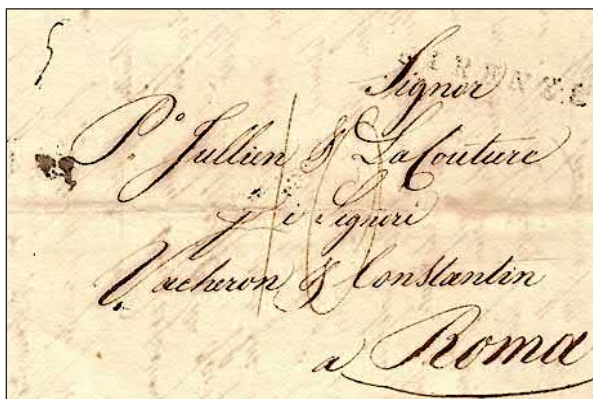 FIRENZE
Signor
P.º Jullien & LaCouture
Signori
Vacheron & Constantin
a Roma